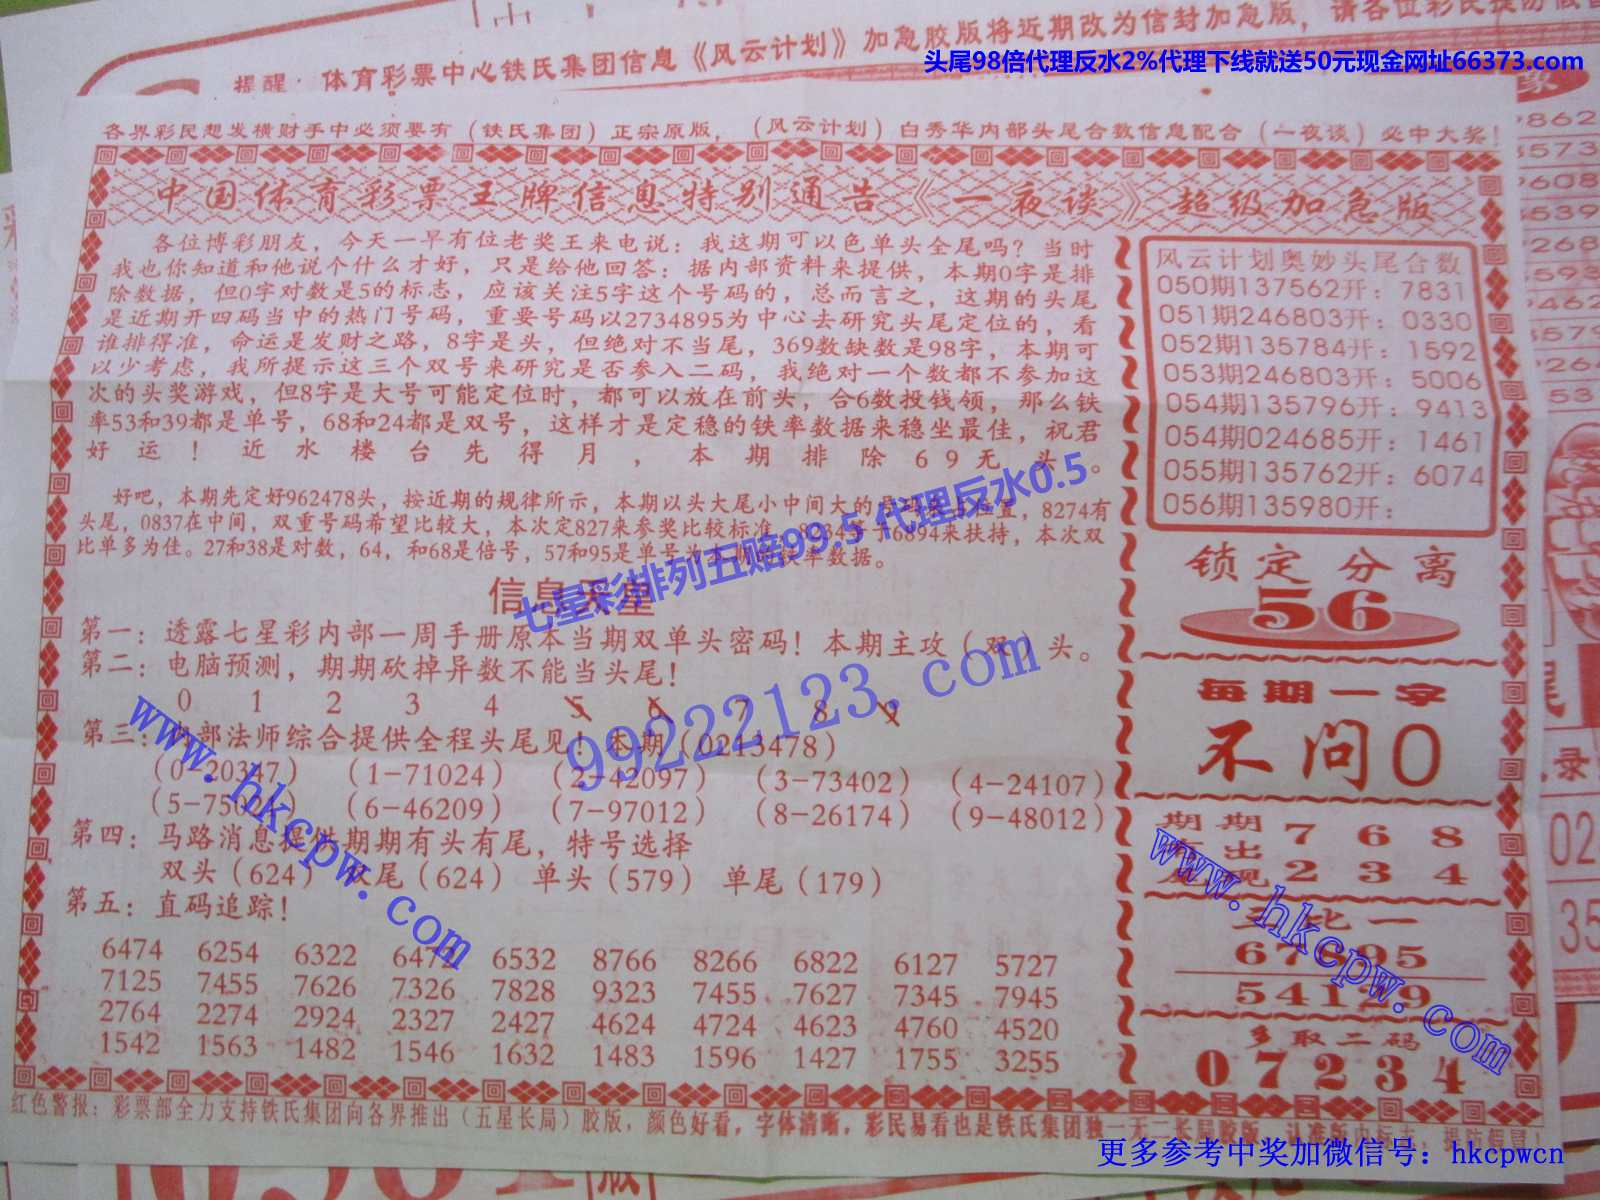 提醒：体育彩票中心铁氏集团信息《风云计划》加急胶版将近期改为信封加急版，请各位彩民提防
头尾98倍代理反水2%代理下线就送50元现金网址66373.com
各界彩民想发横财手中必须要有（铁氏集团）正宗原版，（风云计划）白秀华内部头尾合数信息配合（一夜谈）必中大奖！
中国体育彩票王牌信息特别通告《一夜谈》超级加急版
各位博彩朋友，今天一早有位老奖王来电说：我这期可以色单头全尾吗？当时
我也你知道和他说个什么才好，只是给他回答：据内部资料来提供，本期0字是排
除数据，但0字对数是5的标志，应该关注5字这个号码的，总而言之，这期的头尾
是近期开四码当中的热门号码，重要号码以2734895为中心去研究头尾定位的，看
谁排得准，命运是发财之路，8字是头，但绝对不当尾，369数缺数是98字，本期可
以少考虑，我所提示这三个双号来研究是否参入二码，我绝对一个数都不参加这
次的头奖游戏，但8字是大号可能定位时，都可以放在前头，合6数投钱领，那么铁
率53和39都是单号，68和24都是双号，这样才是定稳的铁率数据来稳坐最佳，祝君
好运！近水楼台先得月，本期排除69无头。
好吧，本期先定好962478头，按近期的规律所示，本期以头大尾小中间大的号码来占位置，8274有
头尾，0837在中间，双重号码希望比较大，本次定827来参奖比较标准，6894来扶持，本次双
比单多为佳。27和38是对数，64，和68是倍号，57和95是单号为本期的铁率数据。
七星彩排列五赔99.5 代理反水0.5
信息天星
第一：透露七星彩内部一周手册原本当期双单头密码！本期主攻（双）头。
第二：电脑预测，期期砍掉异数不能当头尾！
0 1 2 3 4 5 6 7 8 9
第三：内部法师综合提供全程头尾见！本期（0213478）
（0-20347）（1-71024）（2-42097）（3-73402）（4-24107）
（6-46209）（7-97012）（8-26174）（9-48012）
第四：马路消息提供期期有头有尾，特号选择
双头（624） 双尾（624） 单头（579） 单尾（179）
第五：直码追踪！
6474 6254 6322 6472 6532 8766 8266 6822 6127 5727
7125 7455 7626 7326 7828 9323 7455 7627 7345 7945
2764 2274 2924 2327 2427 4624 4724 4623 4760 4520
1542 1563 1482 1546 1632 1483 1596 1427 1755 3255
风云计划奥妙头尾合数
050期137562开：7831
051期246803开：0330
052期135784开：1592
053期246803开：5006
054期135796开：9413
054期024685开：1461
055期135762开：6074
056期135980开：
锁定分离
56
每期一字
不问0
期期 7 6 8
出现 2 3 4
三比一
多取二码
0 7 2 3 4
99222123.com
www.hkcpw.com
www.hkcpw.com
红色警报：彩票部全力支持铁氏集团向各界推出（五星长局）胶版，颜色好看，字体清晰，彩民易看也是铁氏集团独一无二长局胶版
更多参考中奖加微信号：hkcpwcn